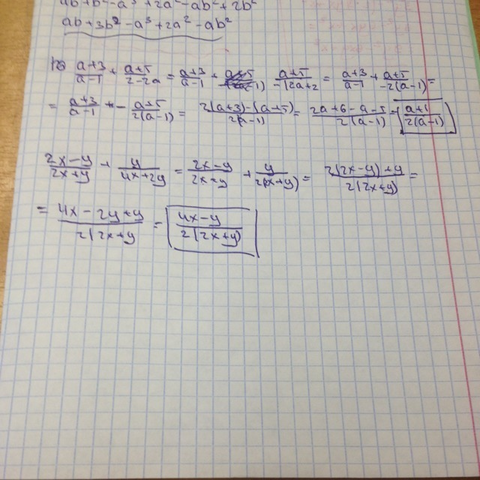 ab+b²-a³+2a²-ab²+2b²
ab+3b²-a³+2a²-ab²
a+3/a-1 + a+5/2-2a = a+3/a-1 + a+5/-2a+2 = a+3/a-1 + a+5/-2(a-1) =
= a+3/a-1 - a+5/2(a-1) = 2(a+3)-(a+5)/2(a-1) = 2a+6-a-5/2(a-1) = a+1/2(a-1)
2x-y/2x+y + y/4x+2y = 2x-y/2x+y + y/2(2x+y) = 2(2x-y)+y/2(2x+y) =
= 4x-2y+y/2(2x+y) = 4x-y/2(2x+y)